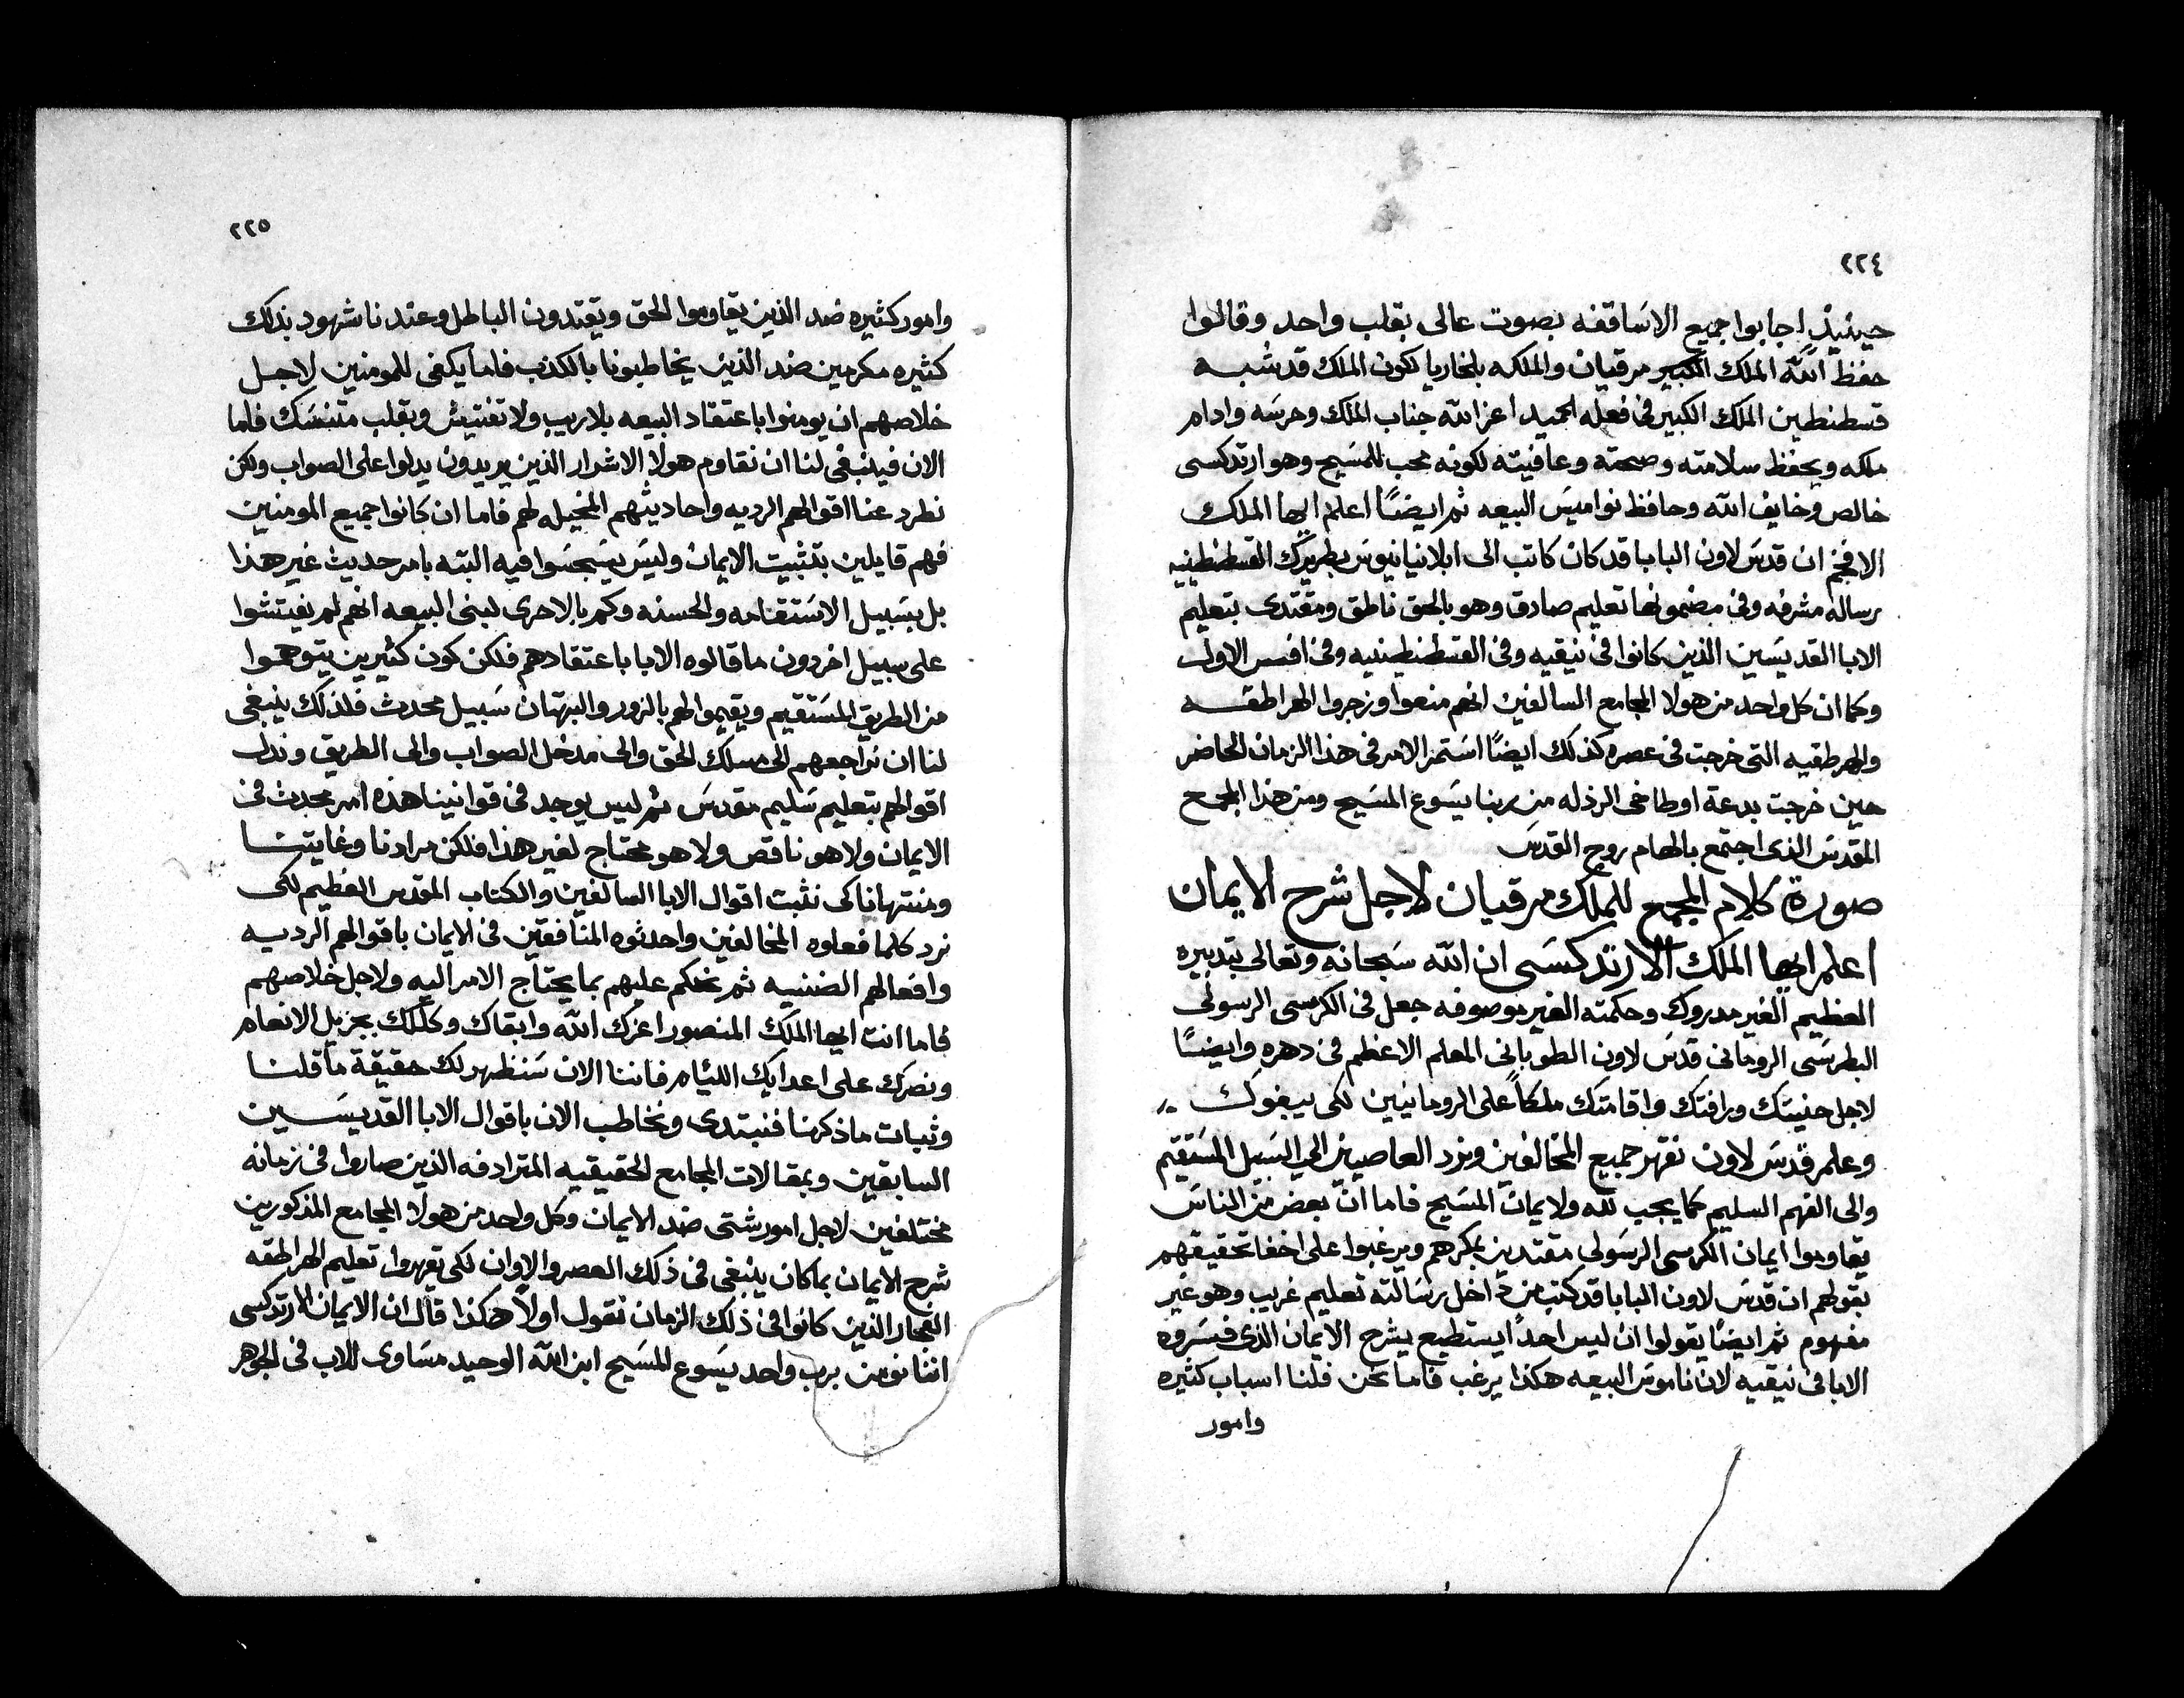 ٢٢٤
حينيذٍ اجابوا جميع الاساقفه بصوت عالى بقلب واحد وقالوا
حفظ الله الملك الكبير مرقيان والملكه بلخاريا لكون الملك قد شبه
قسطنطين الملك الكبير فى فعله الحميد اعز الله جناب الملك وحرسه وادام
ملكه ويحفظ سلامته وصحته وعافيته لكونه محب للمسيح وهو ارتدكسى
خالص وخايف الله وحافظ نواميس البيعه ثم ايضًا اعلم ايها الملك
الافخم ان قدس لاون البابا قد كان كاتب الى ابلانيانيوس بطريرك القسطنطينيه
رساله مشرفه وفى مضمونها تعليم صادق وهو بالحق ناطق ومقتدى بتعليم
الابا القديسين الذين كانوا فى نيقيه وفى القسطنطينيه وفى افسس الاول
وكما ان كل واحد من هولا المجامع السالفين انهم منعوا وزجروا الهراطقه
والهرطقيه التى خرجت فى عصره كذلك ايضًا استمر الامر فى هذا الزمان الحاضر
حين خرجت بدعة اوطاخى الرذله من ربنا يسوع المسيح ومن هذا المجمع
المقدس الذى اجتمع بالهام روح القدس
صورة كلام المجمع للملك مرقيان لاجل شرح الايمان
اعلم ايها الملك الارتدكسى ان الله سبحانه وتعالى بتدبيره
العظيم الغير مدروك وحكمته الغير موصوفه جعل فى الكرسى الرسولى
البطرسى الرومانى قدس لاون الطوبانى المعلم الاعظم فى دهره وايضًا
لاجل حنيتك ورافتك واقامتك ملكاً على الرومانيين لكى بيفوك
وعلم قدس لاون نقهر جميع المخالفين ونرد العاصيين الى السبيل المستقيم
والى الفهم السليم كما يجب لله ولايمان المسيح فاما انّ بعض من الناس
يقاوموا ايمان الكرسى الرسولى مقتدين بمكرهم ويرغبوا على اخفا تحقيقهم
بقولهم ان قدس لاون البابا قد كتب من داخل رسالته تعليم غريب وهو غير
مفهوم ثم ايضًا يقولوا ان ليس احدًا يستطيع يشرح الايمان الذى فسروه
الابا فى نيقيه لان ناموس البيعه هكذا يرغب فاما نحن فلنا اسباب كثيره
وامور
٢٢٥
وامور كثيره ضد الذين يقاوموا الحق ويقتدون الباطل وعندنا شهود بذلك
كثيره مكرمين ضد الذين يخاطبونا بالكذب فاما يكفى للمومنين لاجل
خلاصهم ان يومنوا باعتقاد البيعه بلا ريب ولا تفتيش وبقلب متنسك فاما
الان فينبغى لنا ان نقاوم هولا الاشرار الذين يريدون يدلوا على الصواب ولكن
نطرد عنا اقوالهم الرديه واحاديثهم المخيله لهم فاما ان كانوا جميع المومنين
فهم قايلين بتثبيت الايمان وليس يسجسوا فيه البته بامر حديث غير هذا
بل بسبيل الاستقامه والحسنه وكم بالاحرى لبنى البيعه انهم لم يفيتشوا
على سبيل اخر دون ما قالوه الابا باعتقادهم فلكن كون كثيرين يتوهموا
من الطريق المستقيم ويقيموا لهم بالزور والبهتان سبيل محدث فلذلك ينبغى
لنا ان نراجعهم الى مسلك الحق والى مدخل الصواب والى الطريق وندل
اقوالهم بتعليم سليم مقدس ثم ليس يوجد فى قوانيننا هذه امر محدث فى
الايمان ولا هو ناقص ولا هو محتاج لغير هذا فلكن مرادنا وغايتنا
ومنتهانا كى نثبت اقوال الابا السالفين والكتاب المقدس العظيم لكى
نرد كلما فعلوه المخالفين واحدثوه المنافقين فى الايمان باقوالهم الرديه
وافعالهم الضنيه ثم نحكم عليهم بما يحتاج الامر اليه ولاجل خلاصهم
فاما انت ايها الملك المنصور اعزك الله وابقاك وكللك بجزيل الانعام
ونصرك على اعدايك اللئام فاننا الان سنظهر لك حقيقة ما قلنا
وثبات ما ذكرنا فنبتدى ونخاطب الان باقوال الابا القديسين
السابقين وبمقالات المجامع الحقيقيه المترادفه الذين صاروا فى زمانه
مختلفين لاجل امور شتى ضد الايمان وكل واحد من هولا المجامع المذكورين
شرح الايمان بما كان ينبغى فى ذلك العصر والاوان لكى يقهروا تعليم الهراطقه
الفجار الذين كانوا فى ذلك الزمان نقول اولاً هكذا قال ان الايمان الارتدكسى
اننا نومن برب واحد يسوع المسيح ابن الله الوحيد مساوى للاب فى الجوهر